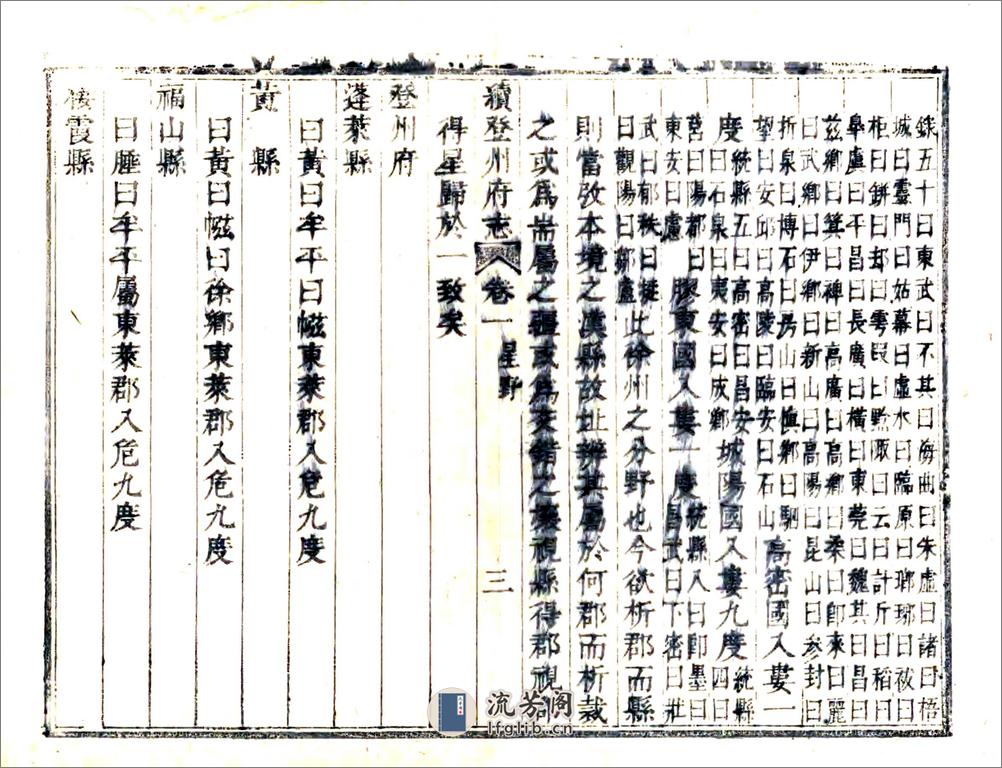 鉄五十曰東武曰不其曰海曲曰朱虛曰諸曰梧
城曰靈門曰姑幕曰虛水曰臨原曰瑯琊曰祓曰
柜曰缾曰邞曰雩叚曰黔陬曰云曰計斤曰稻曰
臯虞曰平昌曰長廣曰橫曰東莞曰魏其曰昌曰
茲鄉曰箕曰椑曰高廣曰高鄉曰柔曰即來曰麗
曰武鄉曰伊鄉曰新山曰高陽曰昆山曰參封曰
折泉曰博石曰房山曰慎鄉曰駟
望曰安邱曰高陵曰臨安曰石山
高密國入婁一
度
統縣五曰高密曰昌安
曰石泉曰夷安曰成鄉
城陽國入婁九度
統縣四曰
莒曰陽都曰
東安曰慮
膠東國入婁一度
統縣八曰即墨曰
昌武曰下密曰壯
武曰郁秩曰挺
曰觀陽曰鄒盧
此徐州之分野也今欲析郡而縣
則當攷本境之漢縣故址辨其屬於何郡而析裁
之或為耑屬之疆或為交錯之壤視縣得郡視
續登州府志
卷一
星野
三
得星歸於一致矣
登州府
蓬萊縣
曰黃曰牟平曰㡵東萊郡入危九度
黃縣
曰黃曰㡵曰徐鄉東萊郡入危九度
福山縣
曰腄曰牟平屬東萊郡入危九度
棲霞縣
流芳閣
lfglib.cn